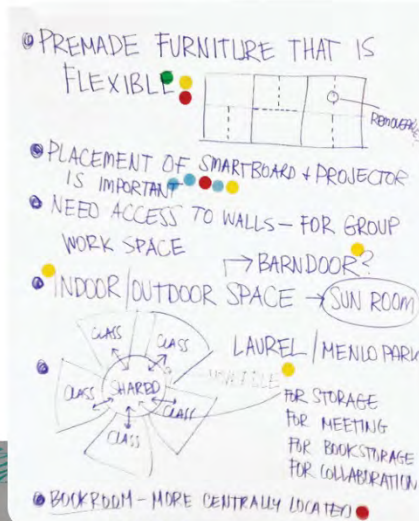 PREMADE FURNITURE THAT IS
FLEXIBLE
PLACEMENT OF SMARTBOARD + PROJECTOR
IS IMPORTANT
NEED ACCESS TO WALLS - FOR GROUP
WORK SPACE
→ BARNDOOR?
INDOOR/OUTDOOR SPACE → SUN ROOM
CLASS
CLASS
LAUREL/MENLO PARK
CLASS
SHARED
CLASS
CLASS
FOR STORAGE
FOR MEETING
FOR BOOKSTORAGE
FOR COLLABORATION
BOOKROOM - MORE CENTRALLY LOCATED